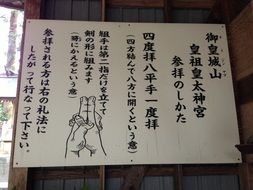 御皇城山
皇祖皇太神宮
参拝のしかた
四度拝八平手一度拝
(四方結んで八方に開くという意)
組手は第二指だけを立てて
剣の形に組みます
(瞬にかえるという意)
参拝される方は右の礼法に
したがって行なって下さい。